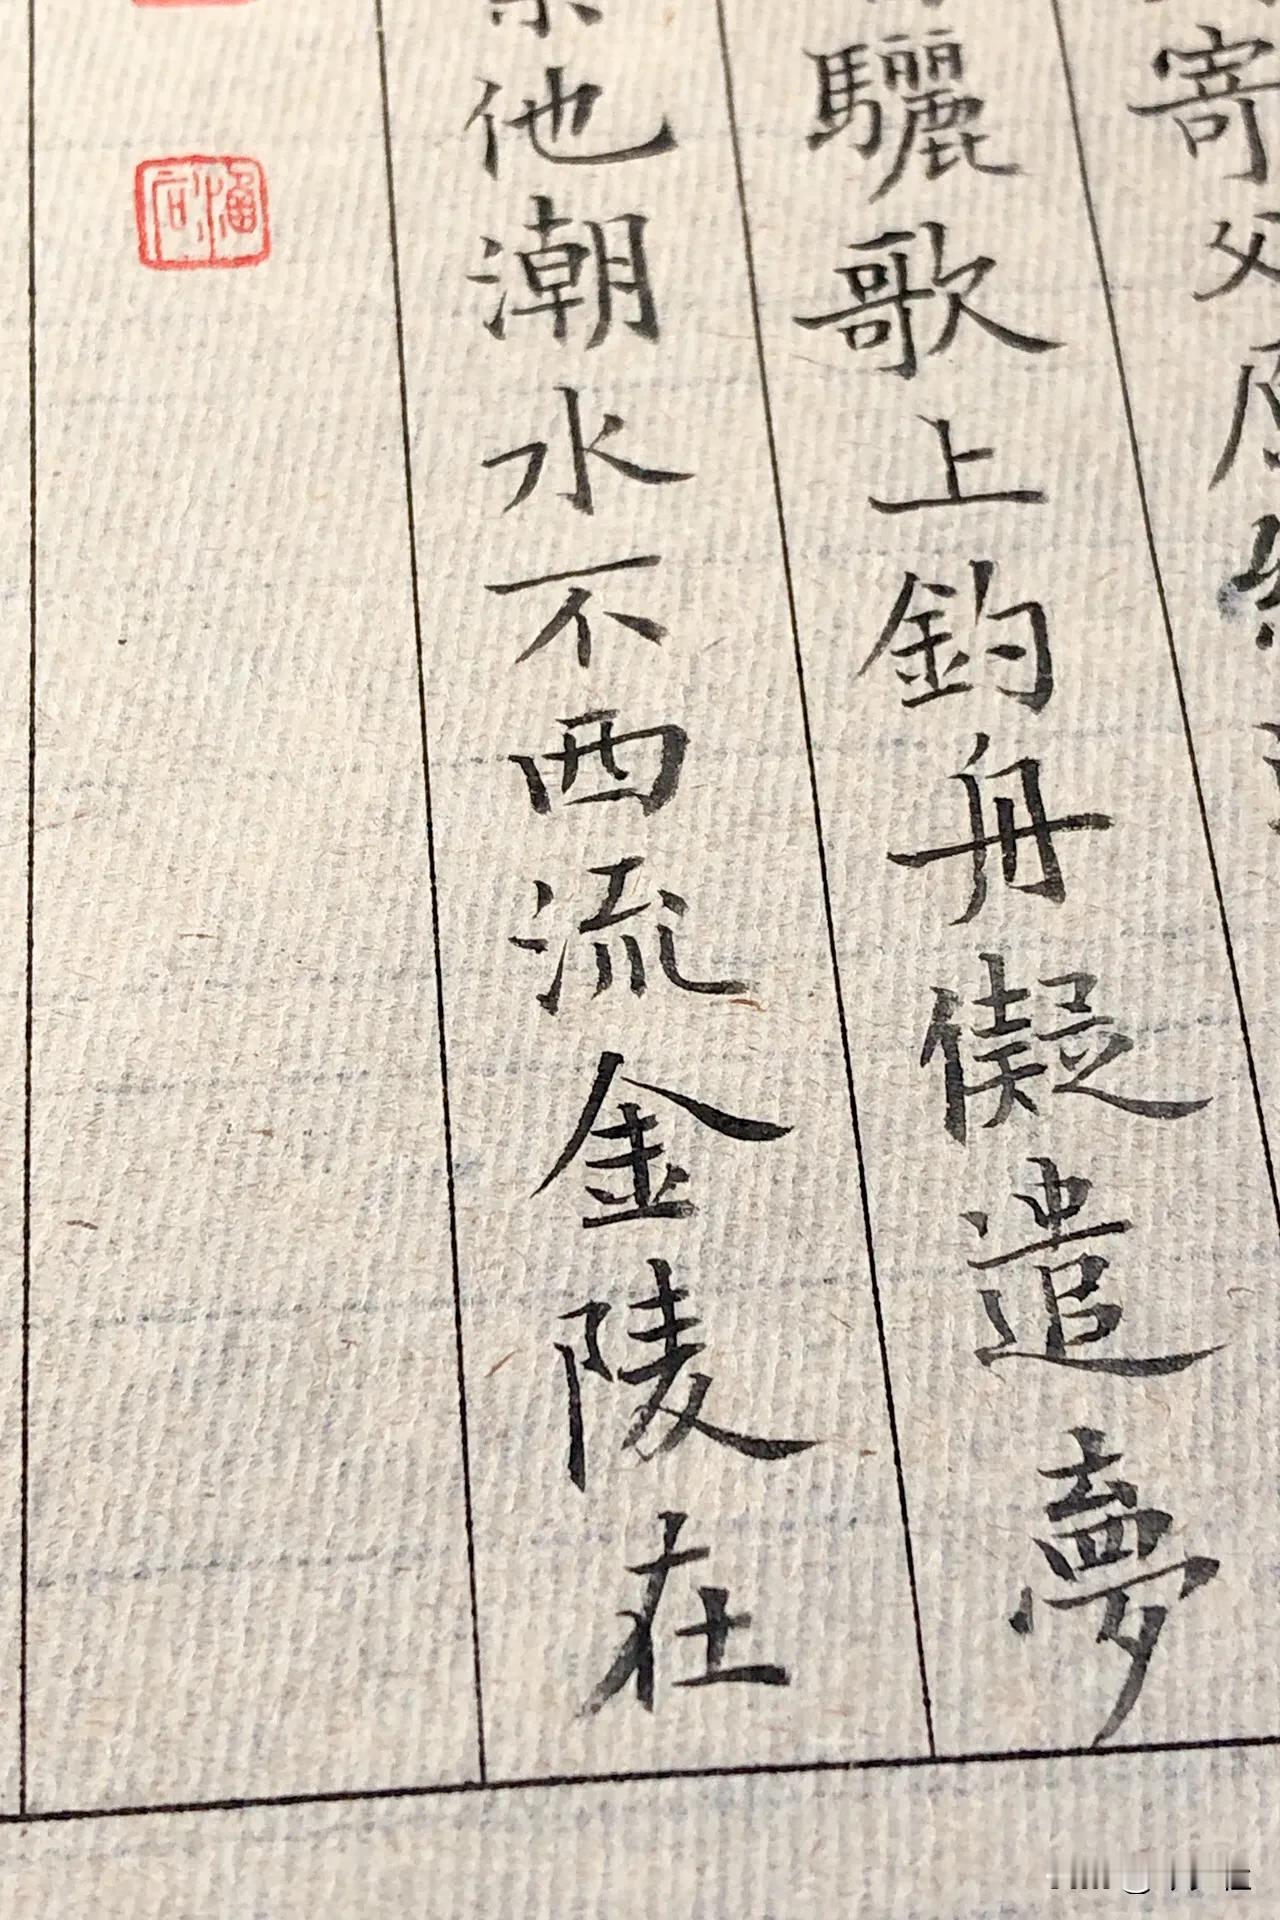 寄父
驪歌上釣舟儗遣夢
他潮水不西流金陵在